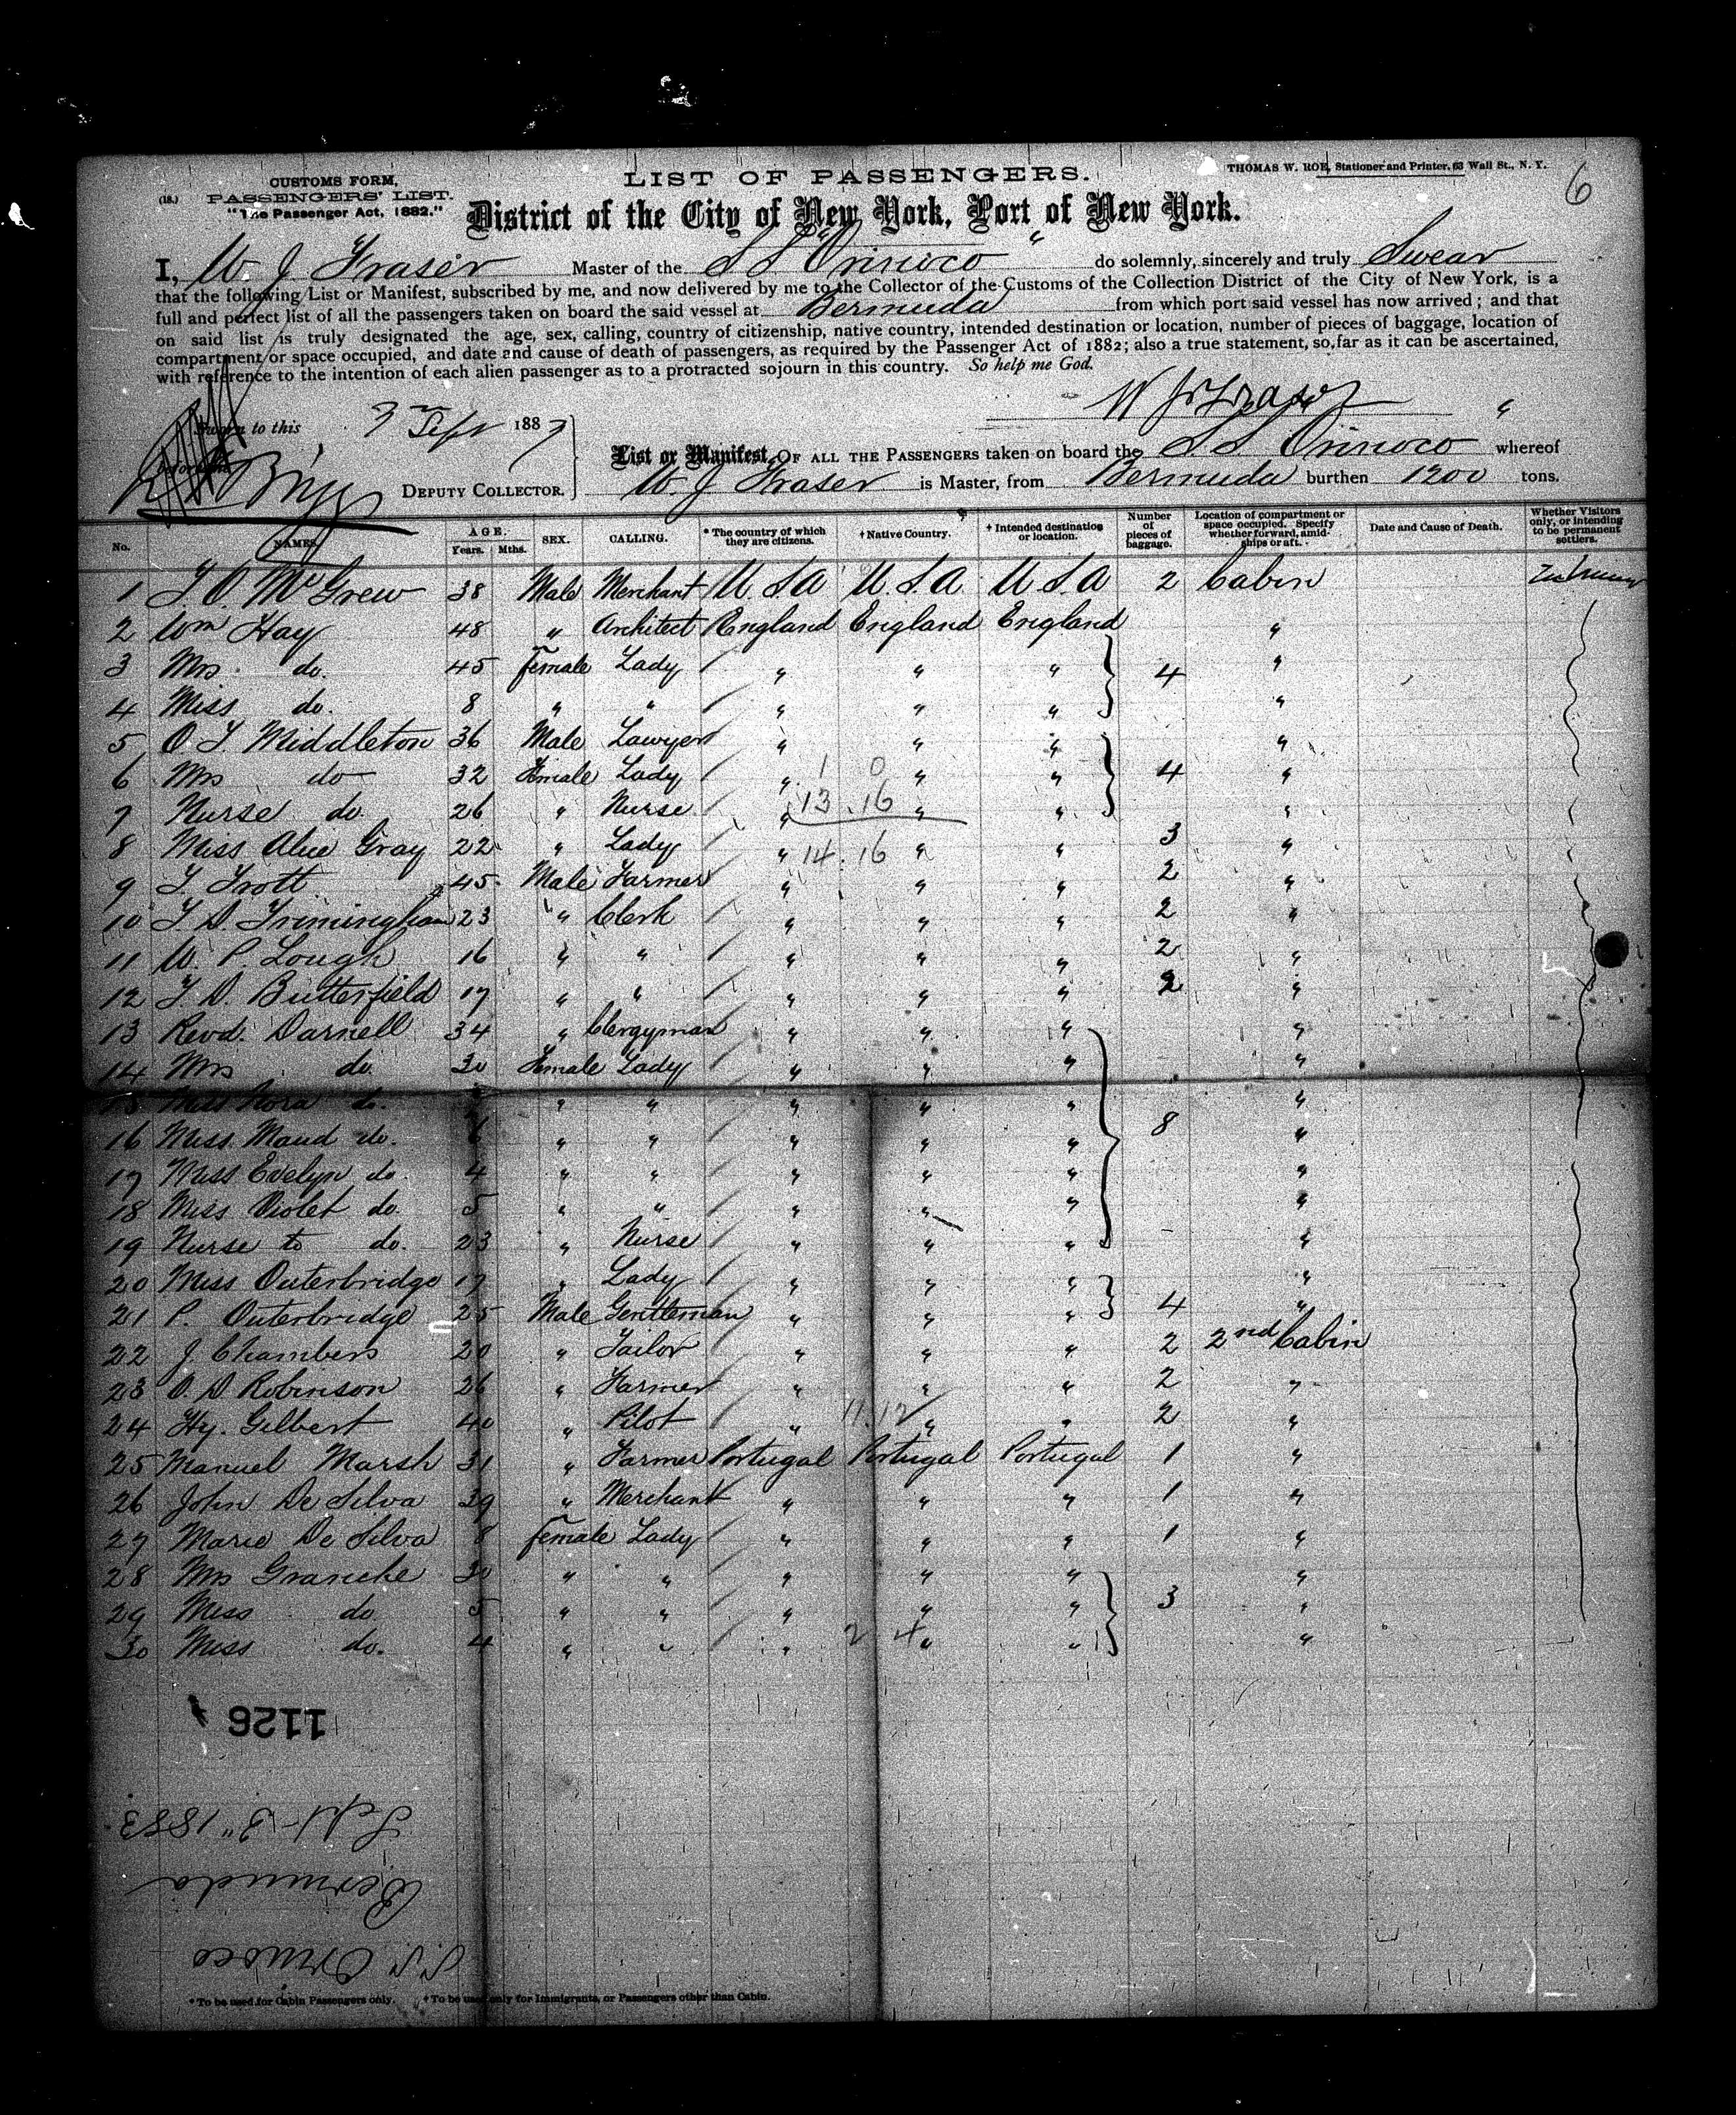 CUSTOMS FORM,
(18.) PASSENGERS' LIST.
"The Passenger Act, 1882."
LIST OF PASSENGERS.
THOMAS W. ROE, Stationer and Printer, 63 Wall St., N. Y.
6
District of the City of New York, Port of New York.
I, W. J Fraser Master of the S S "Orinoco" do solemnly, sincerely and truly Swear
that the following List or Manifest, subscribed by me, and now delivered by me to the Collector of the Customs of the Collection District of the City of New York, is a
full and perfect list of all the passengers taken on board the said vessel at Bermuda from which port said vessel has now arrived; and that
on said list is truly designated the age, sex, calling, country of citizenship, native country, intended destination or location, number of pieces of baggage, location of
compartment or space occupied, and date and cause of death of passengers, as required by the Passenger Act of 1882; also a true statement, so far as it can be ascertained,
with reference to the intention of each alien passenger as to a protracted sojourn in this country. So help me God.
W J Fraser
Sworn to this 3 Sept 188
before me
DEPUTY COLLECTOR.
List or Manifest, OF ALL THE PASSENGERS taken on board the S.S Orinoco whereof
W. J Fraser is Master, from Bermuda burthen 1200 tons.
No. NAMES. AGE. Years. Mths. SEX. CALLING. * The country of which they are citizens. † Native Country. † Intended destination or location. Number of pieces of baggage. Location of compartment or space occupied. Specify whether forward, amidships or aft. Date and Cause of Death. Whether Visitors only, or intending to be permanent settlers.
1 McGrew 38 Male Merchant U.S.A U.S.A. U.S.A 2 Cabin
2 Wm Hay 48 " Architect England England England "
3 Mrs do. 45 Female Lady " " " 4 "
4 Miss do. 8 " " " " " "
5 O. T. Middleton 36 Male Lawyer " " " "
6 Mrs do 32 Female Lady " 1 0 " " 4 "
7 Nurse do. 26 " Nurse " 13.16 " " "
8 Miss Alice Gray 22 " Lady " 14.16 " " 3 "
9 T. Trott 45 Male Farmer " " " 2 "
10 T. D. Trimingham 23 " Clerk " " " 2 "
11 W. P. Lough 16 " " " " " 2 "
12 T. D. Butterfield 17 " " " " " 2 "
13 Revd. Darnell 34 " Clergyman " " " "
14 Mrs do. 30 Female Lady " " " "
15 Miss Nora do. " " " " " "
16 Miss Maud do. 6 " " " " " 8 "
17 Miss Evelyn do. 4 " " " " " "
18 Miss Violet do. 5 " " " " " "
19 Nurse to do. 23 " Nurse " " " - "
20 Miss Outerbridge 17 " Lady " " " "
21 P. Outerbridge 25 Male Gentleman " " " 4 "
22 J Chambers 20 " Tailor " " " 2 2nd Cabin
23 O. D. Robinson 26 " Farmer " " " 2 "
24 Hy. Gilbert 40 " Pilot " 11.12 " " 2 "
25 Manuel Marsh 31 " Farmer Portugal Portugal Portugal 1 "
26 John De Silva 39 " Merchant " " " 1 "
27 Marie De Silva 8 Female Lady " " " 1 "
28 Mrs Graniche 30 " " " " " "
29 Miss do 5 " " " " " 3 "
30 Miss do. 4 " " " 2 4 " " "
1126
Sept 3" 1883
Bermuda
S.S. Orinoco
* To be used for Cabin Passengers only. † To be used only for Immigrants, or Passengers other than Cabin.